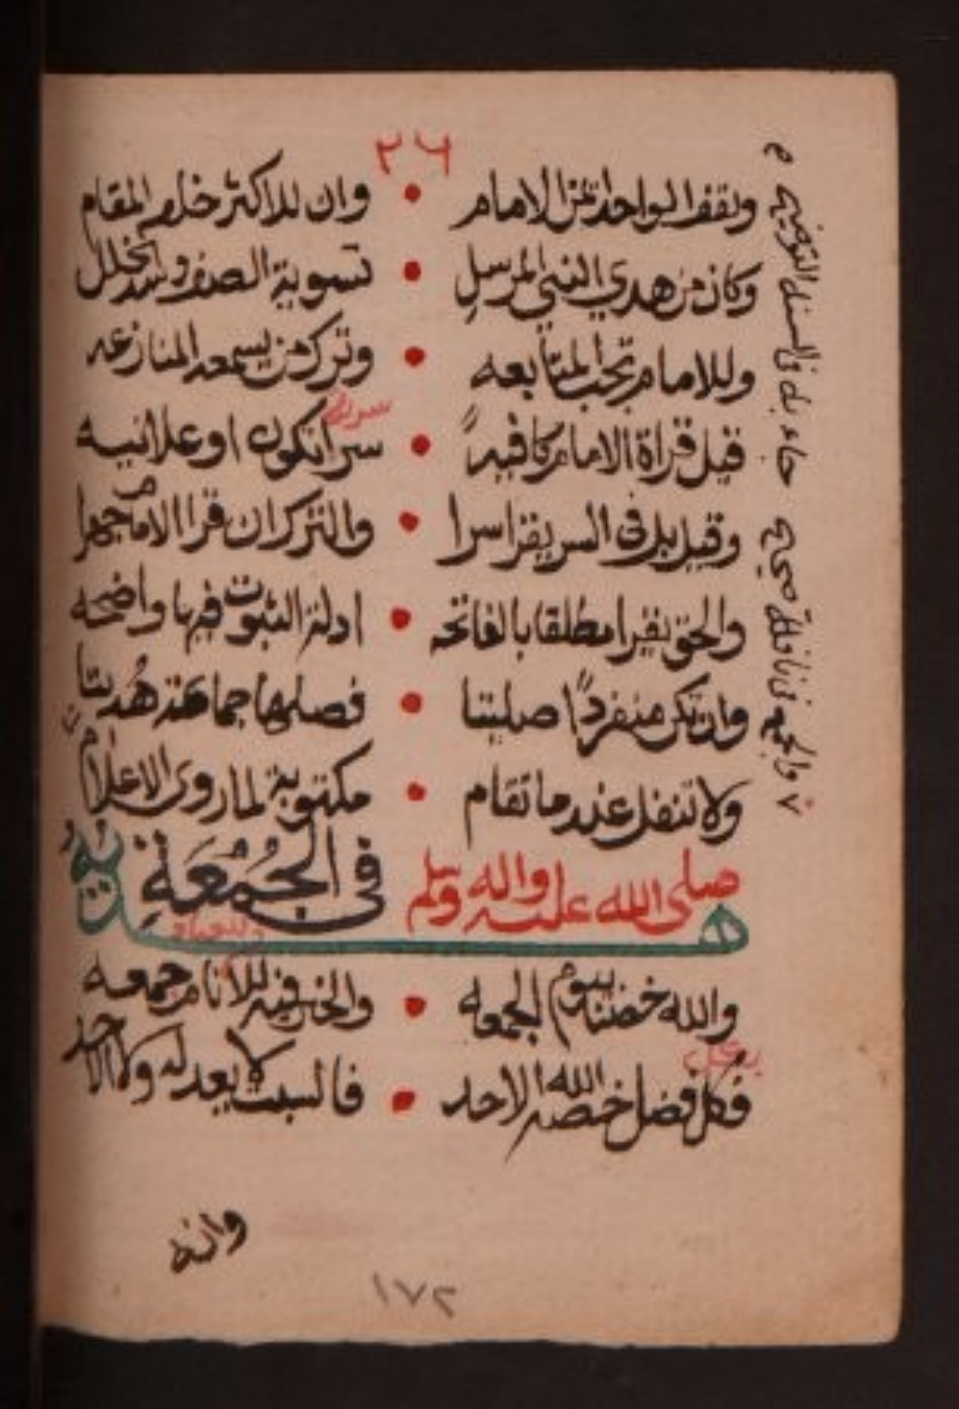 ٢٦
ويقف الواحد يمن الامام • وان للاكثر خلف المقام
وكان من هدي النبي المرسل • تسوية الصف وسد الخلل
وللامام تجب المتابعه • وترك من يسمعه المنازعه
قيل قراة الامام كافيه • سرا تكون او علانيه
وقيل بل في السر يقرا سرا • والترك ان قرا الامام جهرا
والحق يقرا مطلقا بالفاتحه • ادلة الثبوت فيها واضحه
وان تكن منفرداً صليتا • فصلها جماعة هُديتا
ولا تنفل عند ما تقام • مكتوبة لما روى الاعلام
هديه صلى الله عليه واله وسلم في الجُمُعَةِ
والله خصنا بيوم الجمعه • والخير فيه للانام جمعه
فكل فضل خصه الله الاحد • فالسبت لا يعدله ولا الاحد
وانه
١٧٢